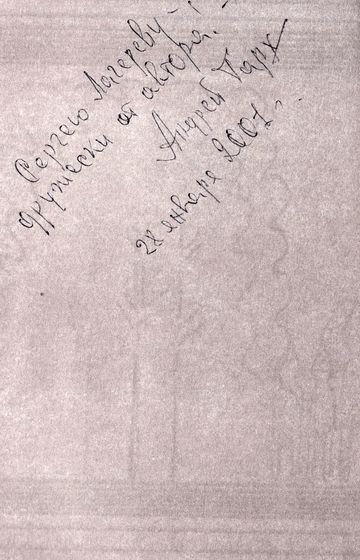 Сергею Лагереву -
дружески от автора.
Андрей Тарх
28 января 2001 г.